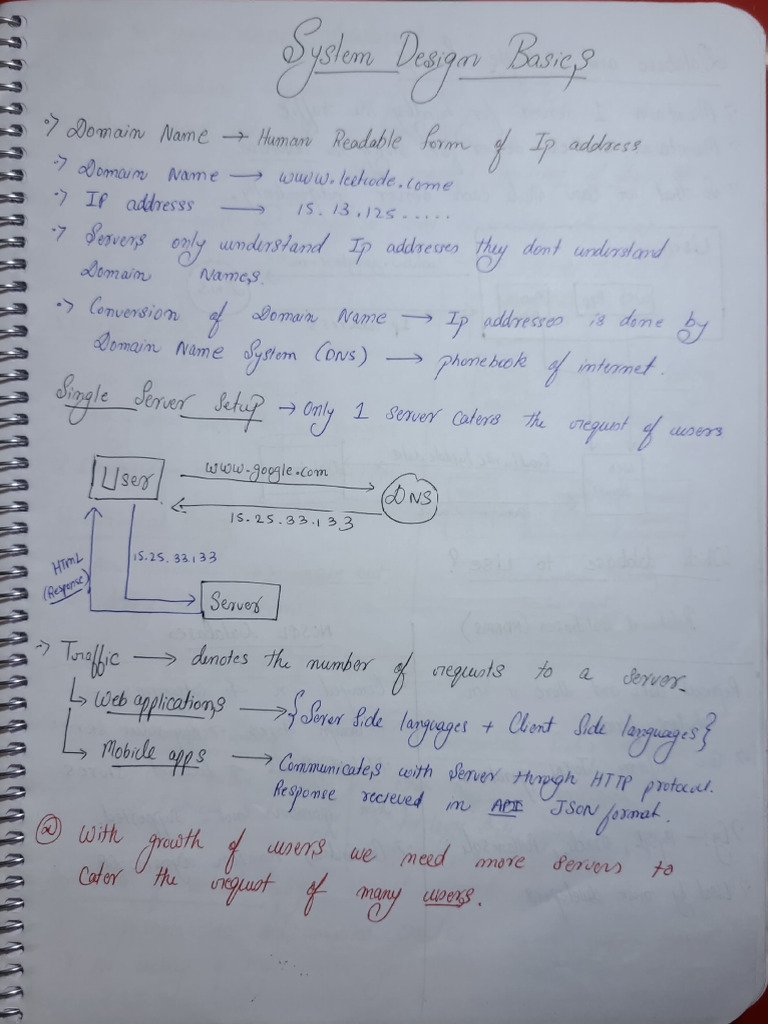 System Design Basics
Domain Name → Human Readable form of Ip address
Domain Name → www.leetcode.come
IP addresss → 15.13.125.....
Servers only understand Ip addresses they dont understand
Domain Names.
Conversion of Domain Name → Ip addresses is done by
Domain Name System (DNS) → phonebook of internet.
Single Server Setup → Only 1 server caters the request of users
User
www.google.com
DNS
15.25.33.133
HTML
(Response)
15.25.33.133
Server
Traffic → denotes the number of requests to a server.
Web applications → {Server Side languages + Client Side languages}
Mobile apps → Communicates with server through HTTP protocol.
Response recieved in API JSON format.
② With growth of users we need more servers to
Cater the request of many users.